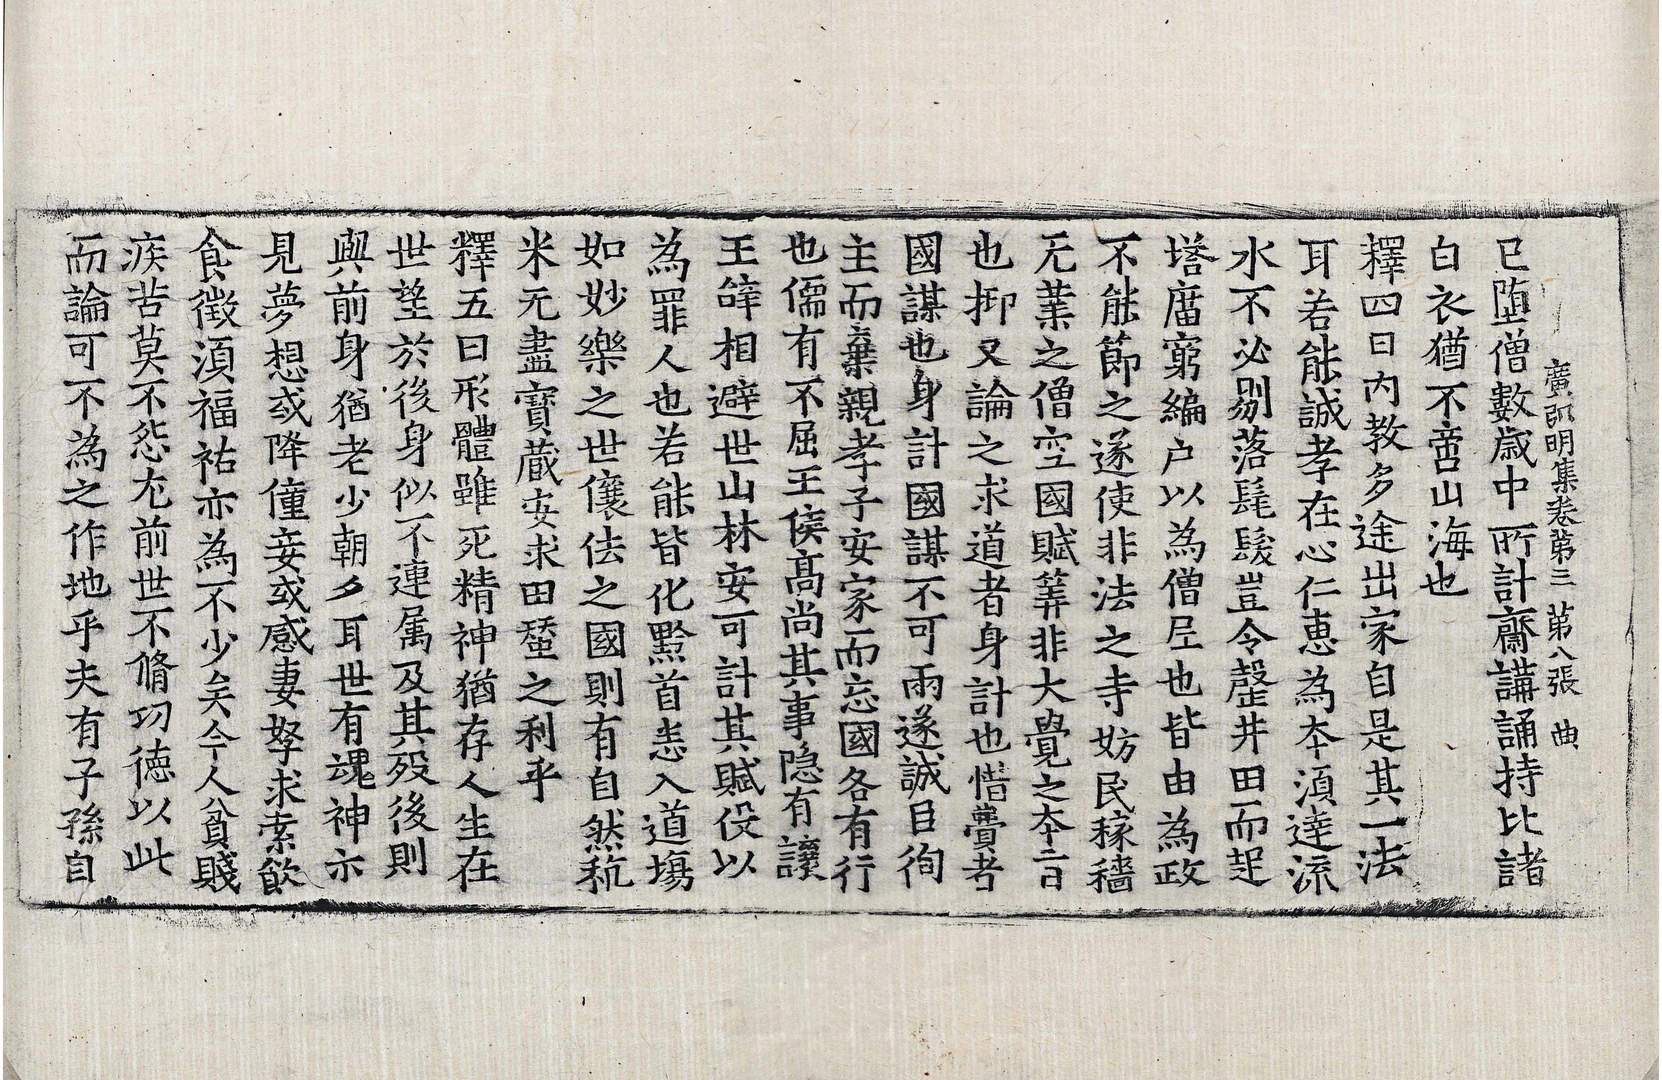 廣弘明集卷第三 第八張 典
已墮僧數歲中所計齋講誦持比諸
白衣猶不啻山海也
釋四曰內教多途出家自是其一法
耳若能誠孝在心仁惠為本湏達流
水不必剔落髦髮豈令罄井田而起
塔庿窮編户以為僧尼也皆由為政
不能節之遂使非法之寺妨民稼穡
无業之僧空國賦筭非大覺之本旨
也抑又論之求道者身計也惜費者
國謀也身計國謀不可兩遂誠臣徇
主而棄親孝子安家而忘國各有行
也儒有不屈王侯髙尚其事隐有讓
王辝相避世山林安可計其賦役以
為罪人也若能皆化黔首悉入道場
如妙樂之世儴佉之國則有自然秔
米无盡寶蔵安求田蚕之利乎
釋五曰形體雖死精神猶存人生在
世望於後身似不連属及其殁後則
與前身猶老少朝夕耳世有魂神示
見夢想或降僮妾或感妻孥求索飲
食徵湏福祐亦為不少矣今人貧賤
疾苦莫不怨尤前世不脩功徳以此
而論可不為之作地乎夫有子孫自